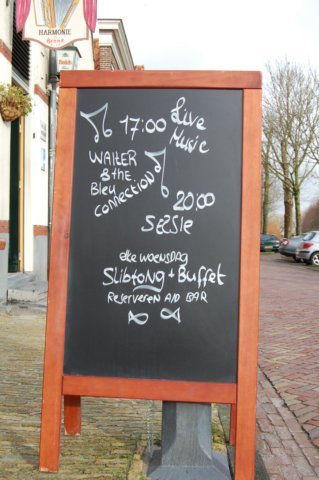 HARMONIE
17:00 Live Music
WALTER
& the
Bley
Connection
20:00
SESSIE
elke woensdag
Slibtong + Buffet
Reserveren A/D BAR